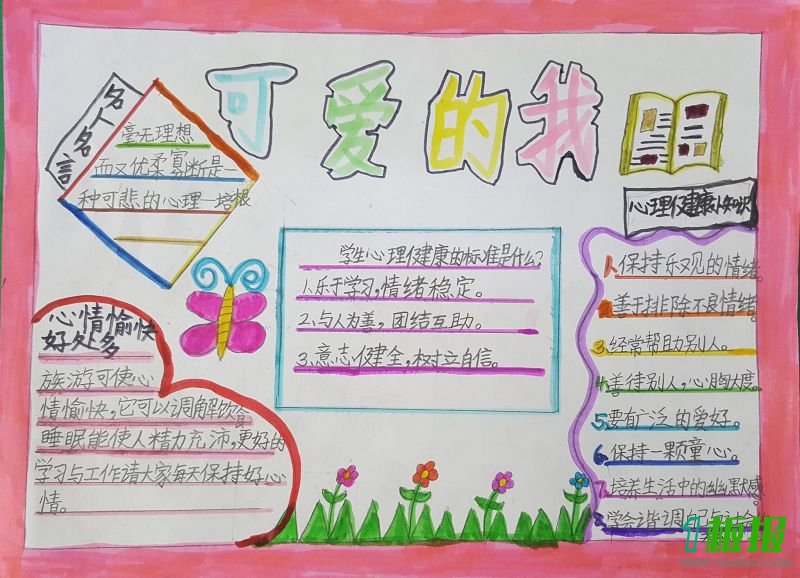 可爱的我
名人名言
毫无理想
而又优柔寡断是一
种可悲的心理—培根
心理健康小知识
学生心理健康的标准是什么?
1.乐于学习,情绪稳定。
2.与人为善,团结互助。
3.意志健全,树立自信。
1.保持乐观的情绪。
2.善于排除不良情绪
3.经常帮助别人。
4.善待别人,心胸大度。
5.要有广泛的爱好。
6.保持一颗童心。
7.培养生活中的幽默感
学会谐调自己与
心情愉快
好处多
旅游可使心
情愉快,它可以调解饮食
睡眠能使人精力充沛,更好的
学习与工作请大家每天保持好心
情。
板报